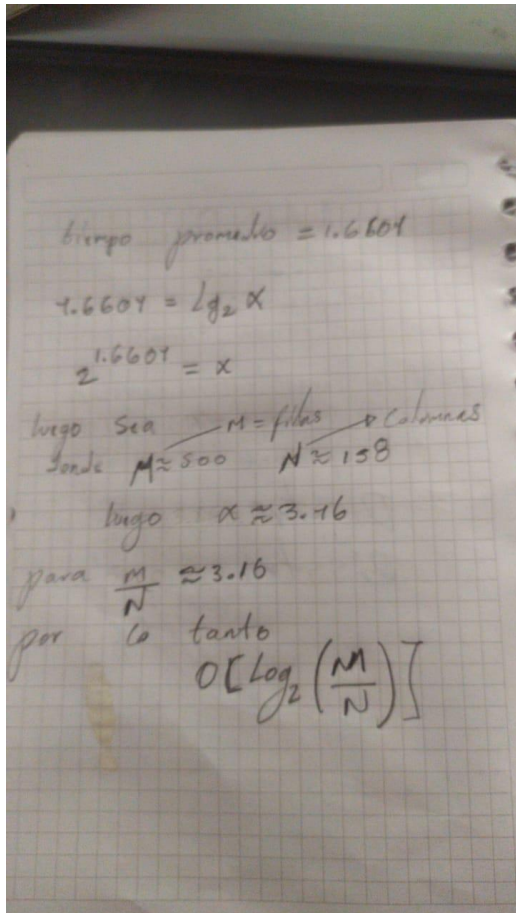 tiempo promedio = 1.6604
1.6604 = Lg₂ x
2^1.6601 = x
luego sea M = filas Columnas
donde M ≈ 500 N ≈ 158
luego x ≈ 3.16
para M/N ≈ 3.16
por lo tanto
O[Log₂(M/N)]